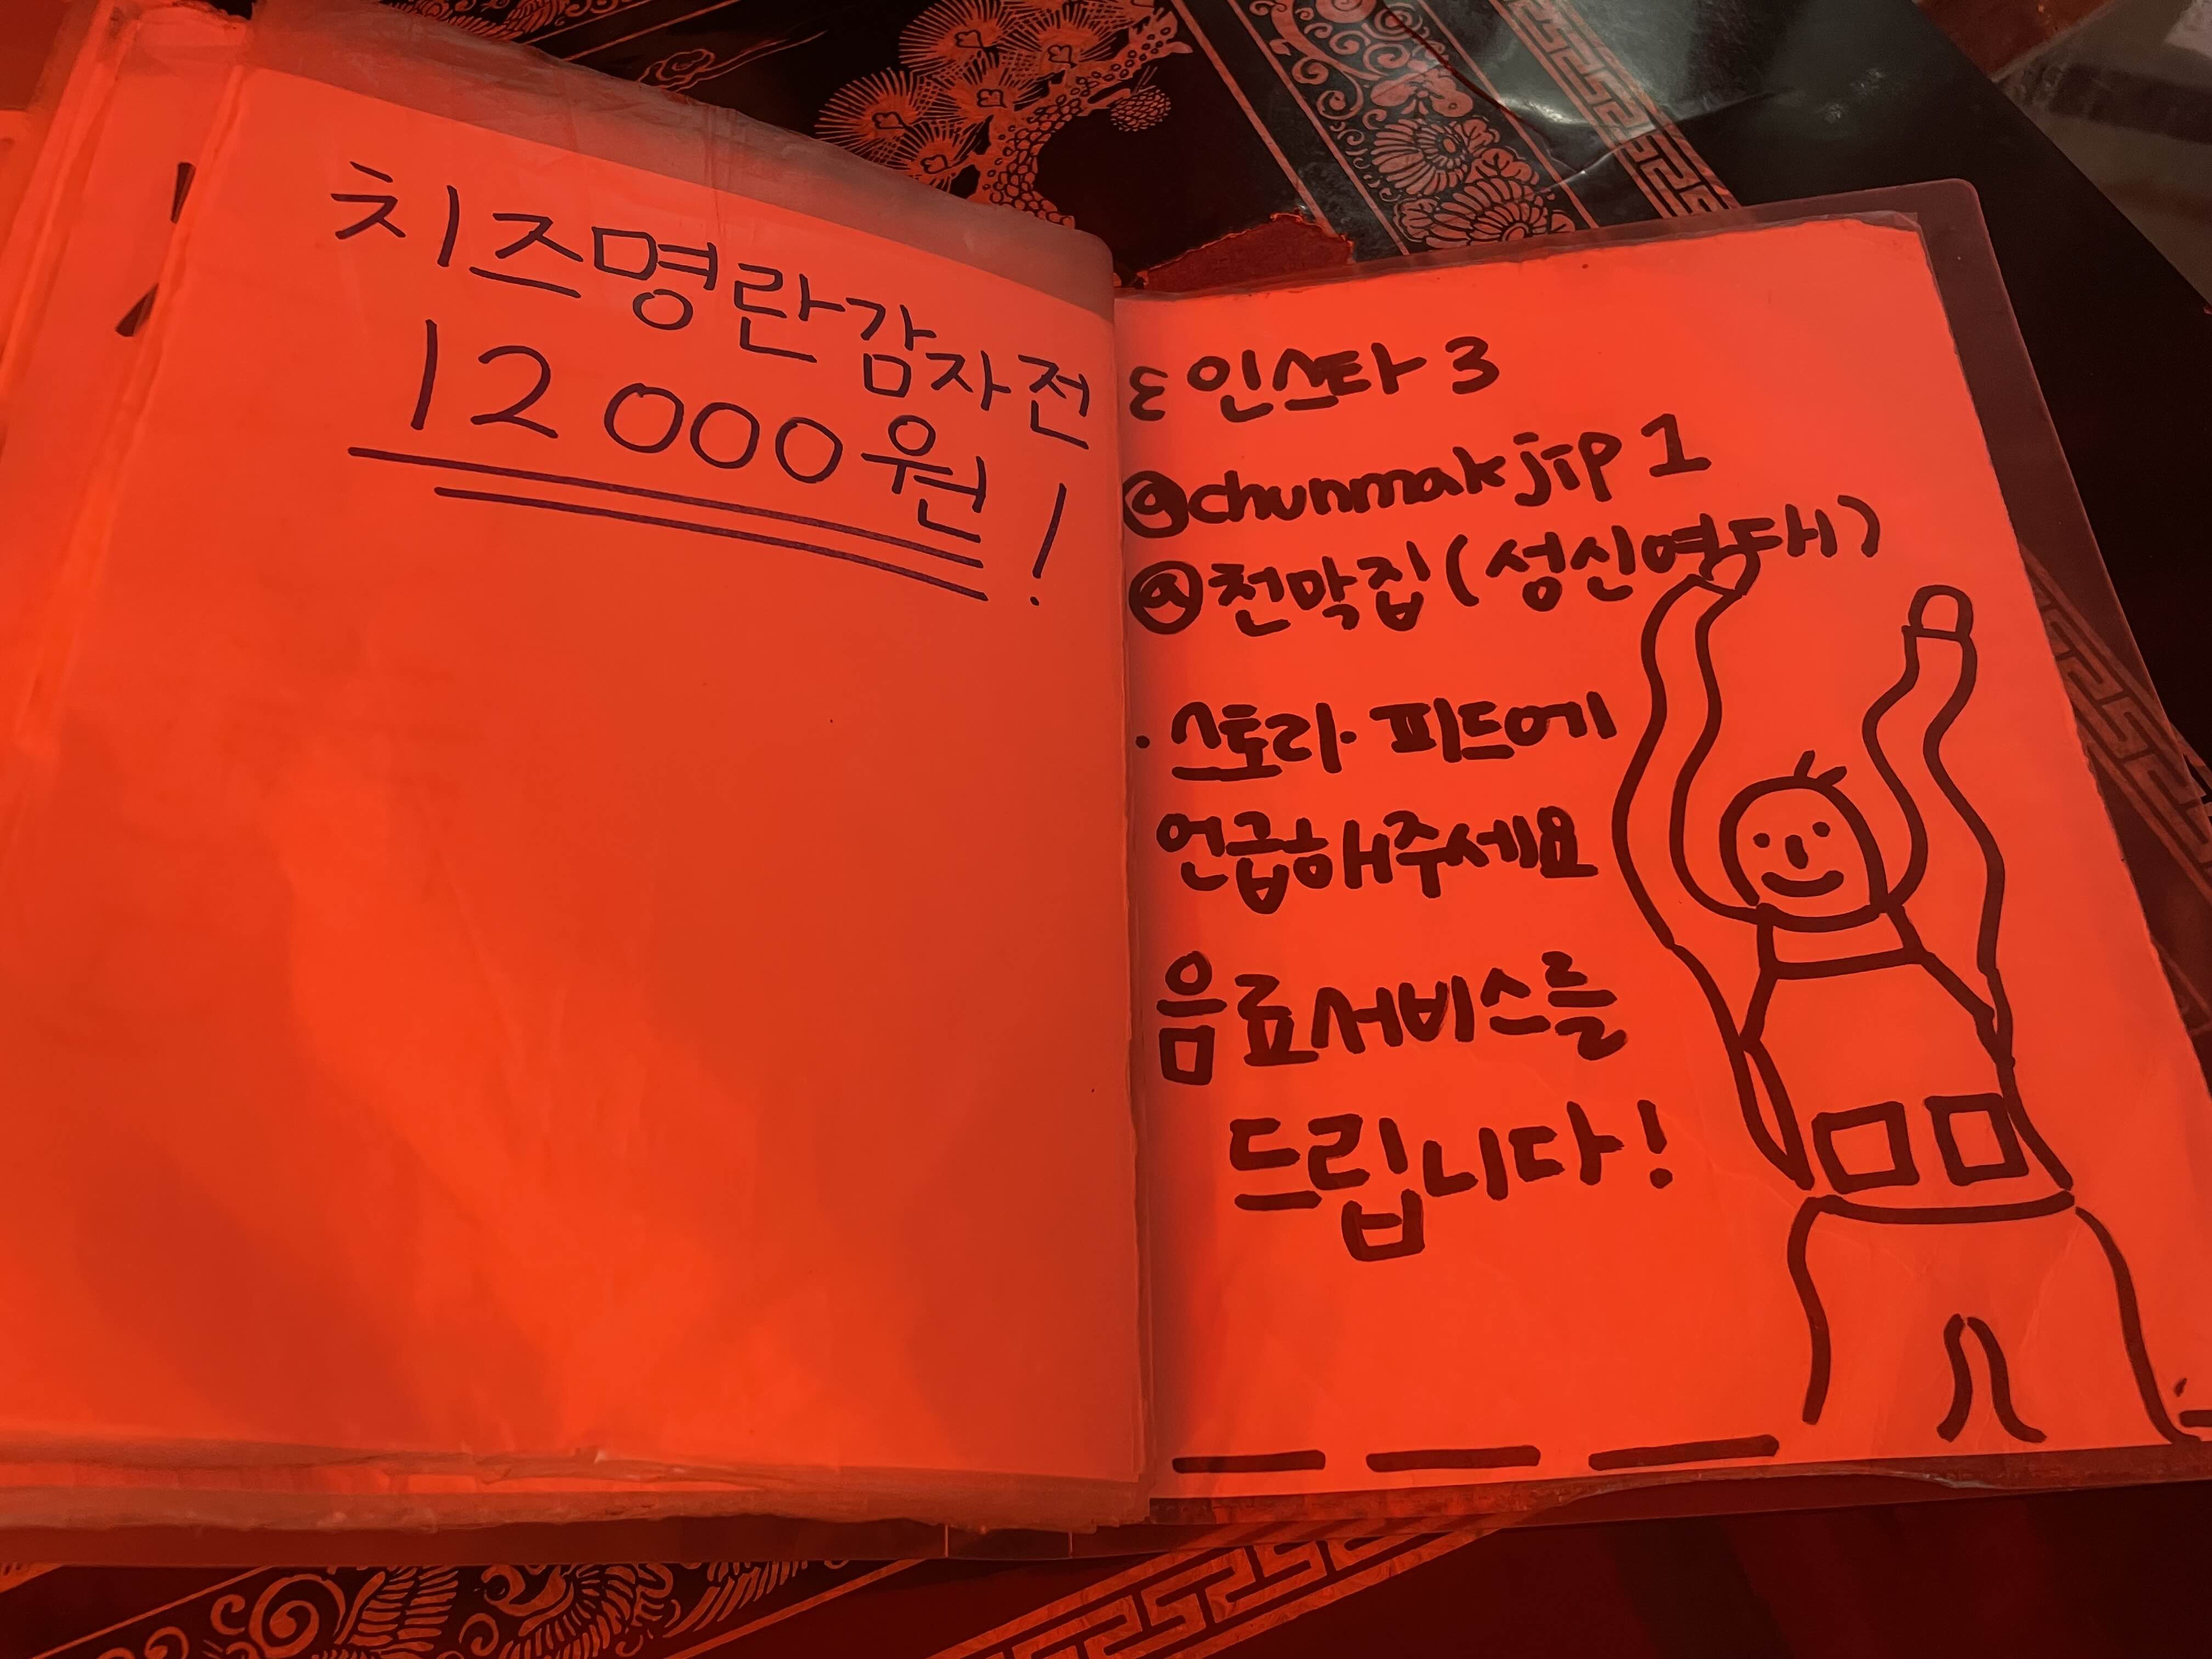 치즈명란감자전
12000원!
ε인스타3
@chunmakjip1
@천막집(성신여대)
· 스토리· 피드에
언급해주세요
음료서비스를
드립니다!